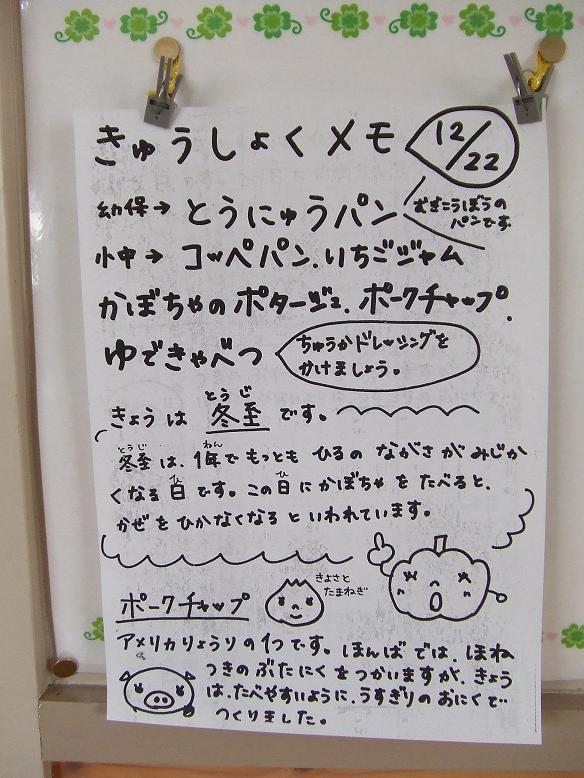 きゅうしょくメモ 12/22
幼保→とうにゅうパン
むぎこうぼうの
パンです。
小中→コッペパン.いちごジャム
かぼちゃのポタージュ.ポークチャップ.
ゆできゃべつ
ちゅうかドレッシングを
かけましょう。
とうじ
きょうは 冬至 です。
とうじ ねん
冬至は、1年でもっとも ひるの ながさが みじか
ひ ひ
くなる日です。この日にかぼちゃをたべると、
かぜをひかなくなるといわれています。
きよさと
たまねぎ
ポークチャップ
アメリカりょうりの1つです。ほんばでは、ほね
つきのぶたにくをつかいますが、きょう
は、たべやすいように、うすぎりのおにくで
つくりました。